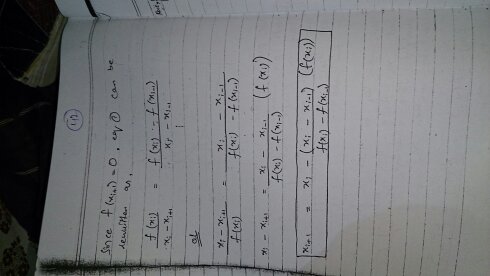 Since f(xi+1) = 0, eq ① can be
rewritten as,
f(xi) / xi - xi+1 = f(xi) - f(xi-1) / xi - xi-1
or
xi - xi+1 / f(xi) = xi - xi-1 / f(xi) - f(xi-1)
xi - xi+1 = xi - xi-1 / f(xi) - f(xi-1) (f(xi))
xi+1 = xi - (xi - xi-1) / f(xi) - f(xi-1) (f(xi))